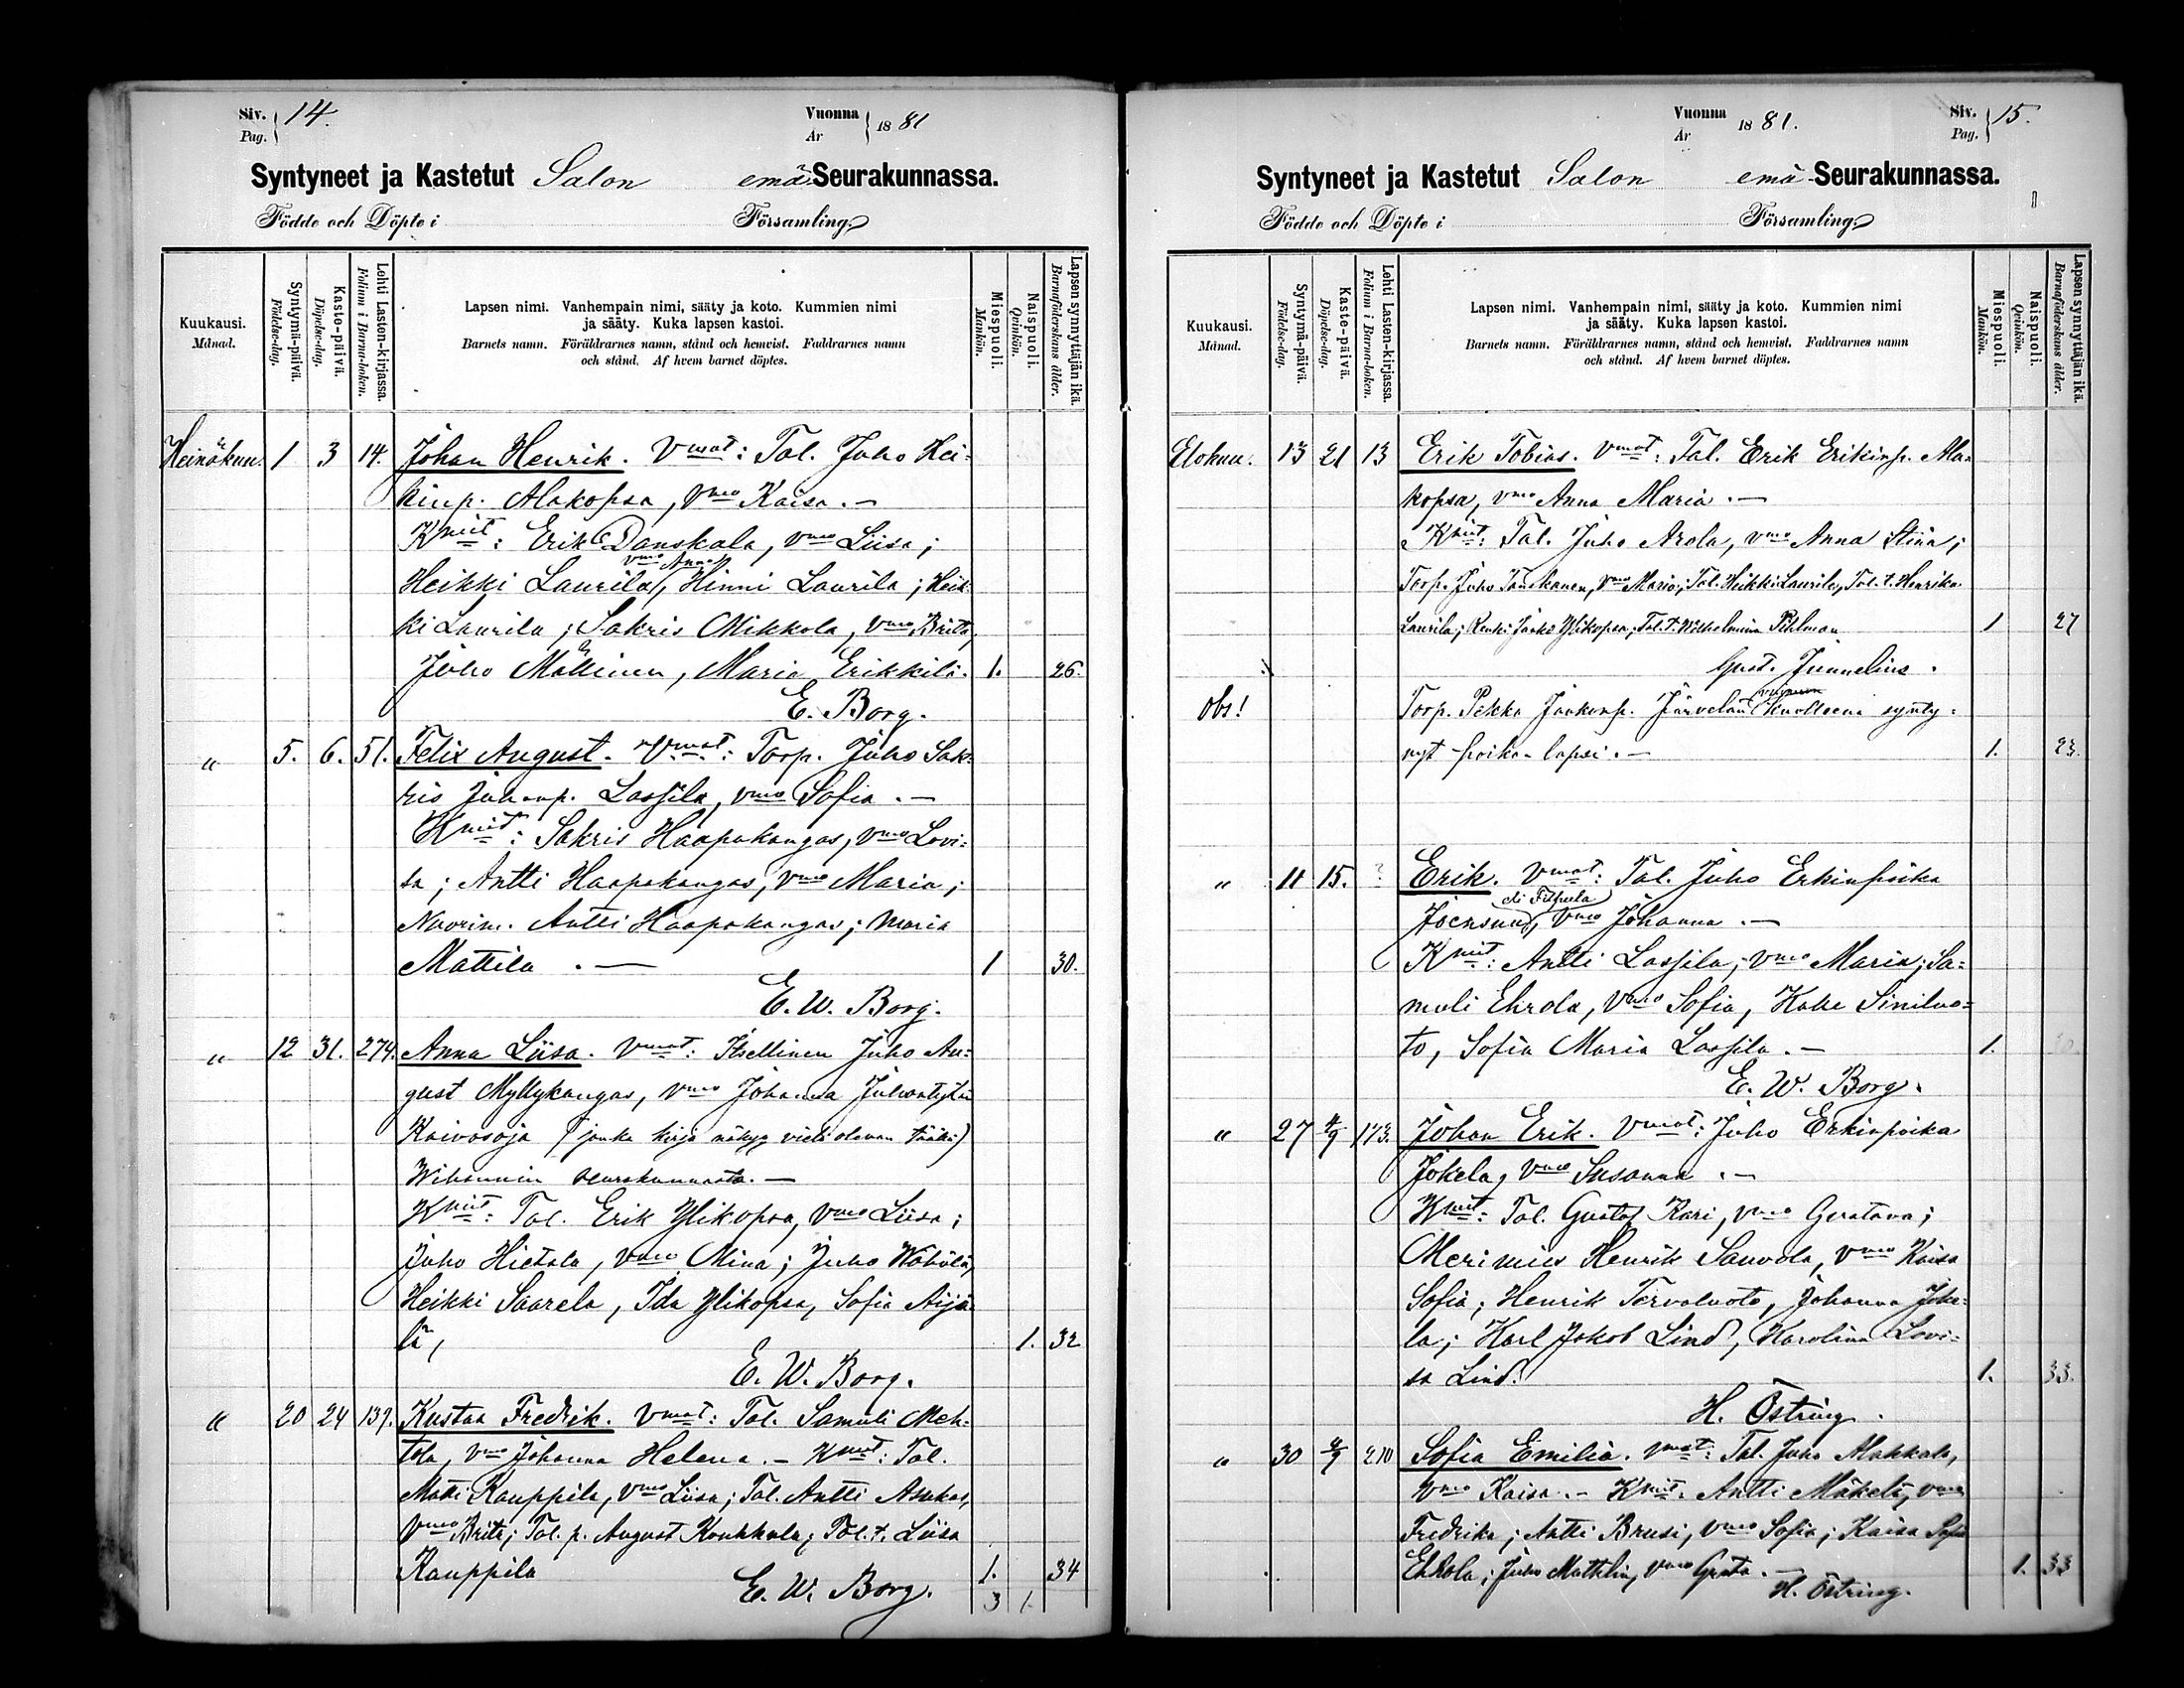 Siv. 14.
Pag.
Vuonna 1881
Ar
Syntyneet ja Kastetut Salon emä Seurakunnassa.
Födde och Döpte i Församling.
Kuukausi. Månad.
Syntymä-päivä. Födelse-dag.
Kaste-päivä. Döpelse-dag.
Lehti Lasten-kirjassa. Folium i Barna-boken.
Lapsen nimi. Vanhempain nimi, sääty ja koto. Kummien nimi
ja sääty. Kuka lapsen kastoi.
Barnets namn. Föräldrarnes namn, stånd och hemvist. Faddrarnes namn
och stånd. Af hvem barnet döptes.
Miespuoli. Mankön.
Naispuoli. Qvinkön.
Lapsen synnyttäjän ikä. Barnaföderskans ålder.
Heinäkuu. 1 3 14. Johan Henrik. Vmat: Tal. Juho Hei-
kinp. Alakopsa, Vmo Kaisa. —
Kmit: Erik Danskala, vmo Liisa;
vmo Anna
Heikki Laurila, Hinni Laurila; Heik-
ki Laurila; Sakris Mikkola, vmo Brita,
Juho Mällinen, Maria Erikkilä. 1. 26.
E. Borg.
" 5. 6. 51. Felix August. Vmat: Torp. Juho Sak-
ris Juhonp. Lassila, vmo Sofia. —
Kmit: Sakris Haapakangas, vmo Lovi-
sa; Antti Haapakangas, vmo Maria;
Nuorim. Antti Haapakangas; Maria
Mattila. — 1 30.
E. W. Borg.
" 12 31. 274. Anna Liisa. Vmat: Itsellinen Juho Au-
gust Myllykangas, vmo Johanna Juhontytär
Koivosoja (jonka kirja näkyy vielä olevan tääki)
Wihannin seurakunnasta. —
Kmit: Tal. Erik Ylikopsa, vmo Liisa;
Juho Hietala, vmo Mina; Juho Wähälä,
Heikki Saarela, Ida Ylikopsa, Sofia Aijä-
lä, 1. 32
E. W. Borg.
" 20 24 139. Kustaa Fredrik. Vmat: Tal. Samuli Meh-
tola, vmo Johanna Helena. — Kmit: Tal.
Matti Kauppila, vmo Liisa; Tal. Antti Asukas,
Vmo Brita; Tal. p. August Koukkula; Tal. t. Liisa
Kauppila 1. 34
E. W. Borg.
3 1.
Vuonna 1881.
Ar
Siv. 15.
Pag.
Syntyneet ja Kastetut Salon emä Seurakunnassa.
Födde och Döpte i Församling.
Kuukausi. Månad.
Syntymä-päivä. Födelse-dag.
Kaste-päivä. Döpelse-dag.
Lehti Lasten-kirjassa. Folium i Barna-boken.
Lapsen nimi. Vanhempain nimi, sääty ja koto. Kummien nimi
ja sääty. Kuka lapsen kastoi.
Barnets namn. Föräldrarnes namn, stånd och hemvist. Faddrarnes namn
och stånd. Af hvem barnet döptes.
Miespuoli. Mankön.
Naispuoli. Qvinkön.
Lapsen synnyttäjän ikä. Barnaföderskans ålder.
Elokuu. 13 21 13 Erik Tobias. Vmat: Tal. Erik Erikinp. Ala-
kopsa, vmo Anna Maria. —
Kmit: Tal. Juho Arola, vmo Anna Stina;
Torp. Juho Tanskanen, vmo Maria; Tal. Heikki Laurila, Tal. t. Henrika
Laurila; Renki Jaako Ylikopsa; Tal. t. Wilhelmina Pihlman 1 27
Gust. Junnelius.
Obs! Torp. Pekka Jaakonp. Järvelän kuolleena synty-
nyt poika-lapsi. — 1. 23.
" 11 15. ? Erik. Vmat: Tal. Juho Erkinpoika
Joensuu, vmo Johanna. —
Kmit: Antti Lassila, vmo Maria; Sa-
muli Ehrola, vmo Sofia, Kalle Siniluo-
to, Sofia Maria Lassila. — 1.
E. W. Borg.
" 27 4/9 173. Johan Erik. Vmat: Juho Erkinpoika
Jokela, vmo Susanna. —
Kmit: Tal. Gustaf Kari, vmo Gustava;
Merimies Henrik Sauvola, vmo Kaisa
Sofia; Henrik Tervaluoto, Johanna Joke-
la; Karl Jakob Lind, Karolina Lovi-
sa Lind. 1. 33.
H. Östring.
" 30 4/9 210 Sofia Emilia. Vmat: Tal. Juho Makkala,
vmo Kaisa. — Kmit: Antti Mäkelä, vmo
Fredrika; Antti Brusi, vmo Sofia; Kaisa Sofia
Ehrola; Juho Mathlin, vmo Greta. — 1. 33
H. Östring.